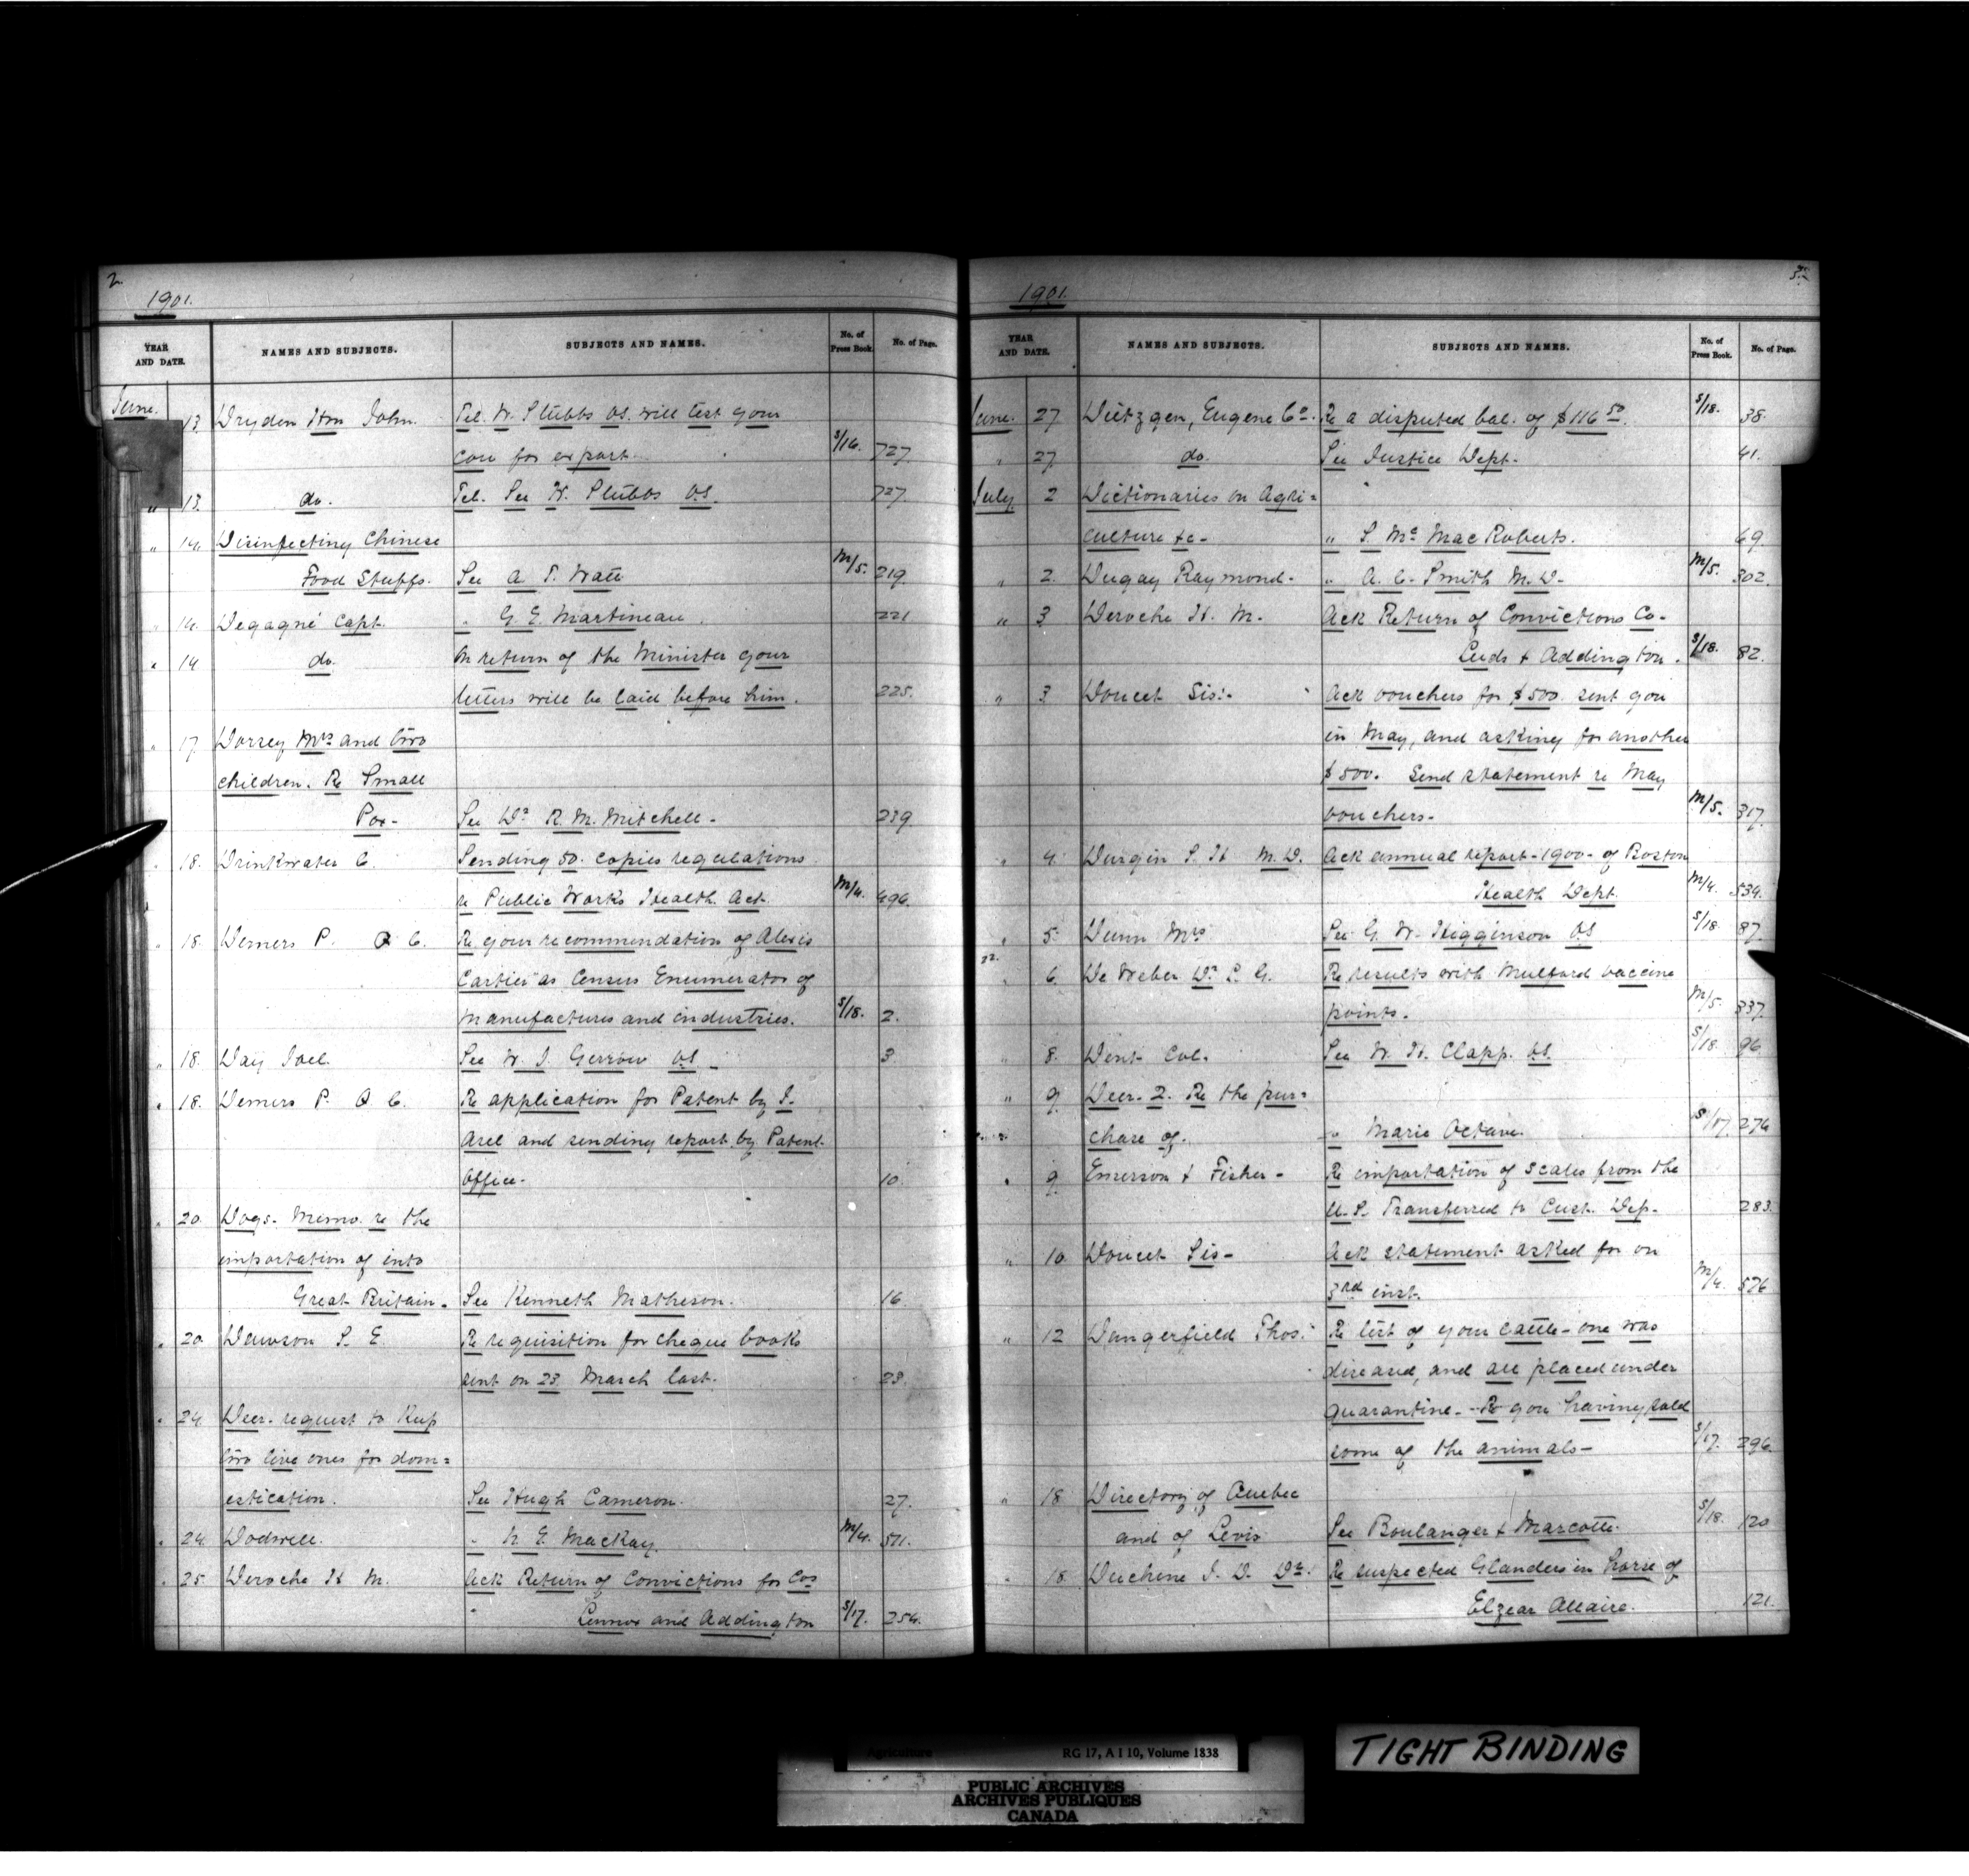 2
1901.
YEAR AND DATE. NAMES AND SUBJECTS. SUBJECTS AND NAMES. No. of Press Book. No. of Page.
June. 13. Dryden Hon John. Tel. W. Stubbs V.S. will test your
cow for export. S/16. 727
" 13. do. Tel. See W. Stubbs V.S. 727
" 14. Disinfecting Chinese
Food Stuffs. See A. T. Watt M/5. 219.
" 14. Degagné Capt. " G. E. Martineau. 221
" 14 do. On return of the Minister your
letters will be laid before him. 225.
" 17. Dorsey Mrs and two
children. Re Small
Pox- See Dr R. M. Mitchell- 239
" 18. Drinkwater C. Sending 50. copies regulations
re Public Works Health Act. M/4. 496.
" 18. Demers P. A C. Re your recommendation of Alexis
Cartier as Census Enumerator of
manufactures and industries. S/18. 2.
" 18. Day Joel. See W. J. Gerrow V.S. 3
" 18. Demers P. A C. Re application for Patent by J.
Arel and sending report by Patent
Office- 10.
" 20. Dogs. Memo. re the
importation of into
Great Britain. See Kenneth Matheson. 16
" 20. Dawson S. E. Re requisition for cheque books
sent on 23. March last. 23.
" 24. Deer- request to Keep
two live ones for dom=
estication. See Hugh Cameron. 27.
" 24. Dodwell. " N. E. MacKay. M/4. 511.
" 25. Deroche H. M. Ack Return of Convictions for Cos
Lennox and Addington S/17. 254.
1901.
YEAR AND DATE. NAMES AND SUBJECTS. SUBJECTS AND NAMES. No. of Press Book. No. of Page.
June. 27. Dietzgen, Eugene Co. Re a disputed bal. of $116 50. S/18. 38.
" 27. do. See Justice Dept. 41.
July 2 Dictionaries on Agri=
culture &c- " S. Mc Mac Roberts. 69.
" 2. Dugay Raymond. " A. C. Smith M.D. M/5. 302.
" 3 Deroche H. M. Ack Return of Convictions Co-
Leeds & Addington. S/18. 82.
" 3 Doucet Sis:- Ack vouchers for $500. sent you
in May, and asking for another
$500. Send statement re May
vouchers- M/5. 317.
" 4. Durgin S. H M.D. Ack annual report-1900- of Boston
Health Dept. M/4. 534.
" 5. Dunn Mrs See G. W. Higginson V.S S/18 87.
" 6. De Weber Dr L. G. Re results with Mulford vaccine
points. M/5. 337.
" 8. Dent Col. See W. H. Clapp. V.S. S/18. 96
" 9. Deer. 2. Re the pur=
chase of. " Marie Octave. S/17. 276
" 9 Emerson & Fisher- Re importation of scales from the
U.S. Transferred to Cust. Dep- 283.
" 10. Doucet Sis- Ack statement asked for on
3rd inst. M/4. 576
" 12 Dangerfield Thos: Re test of your cattle-one was
diseased, and are placed under
quarantine. - Re you having sold
some of the animals- S/17. 296
" 18. Directory of Quebec
and of Levis See Boulanger & Marcotte. S/18. 120
" 18. Duchene J. D. Dr: Re suspected Glanders in horse of
Elzear Allaire. 121.
Agriculture RG 17, A I 10, Volume 1838
PUBLIC ARCHIVES
ARCHIVES PUBLIQUES
CANADA
TIGHT BINDING